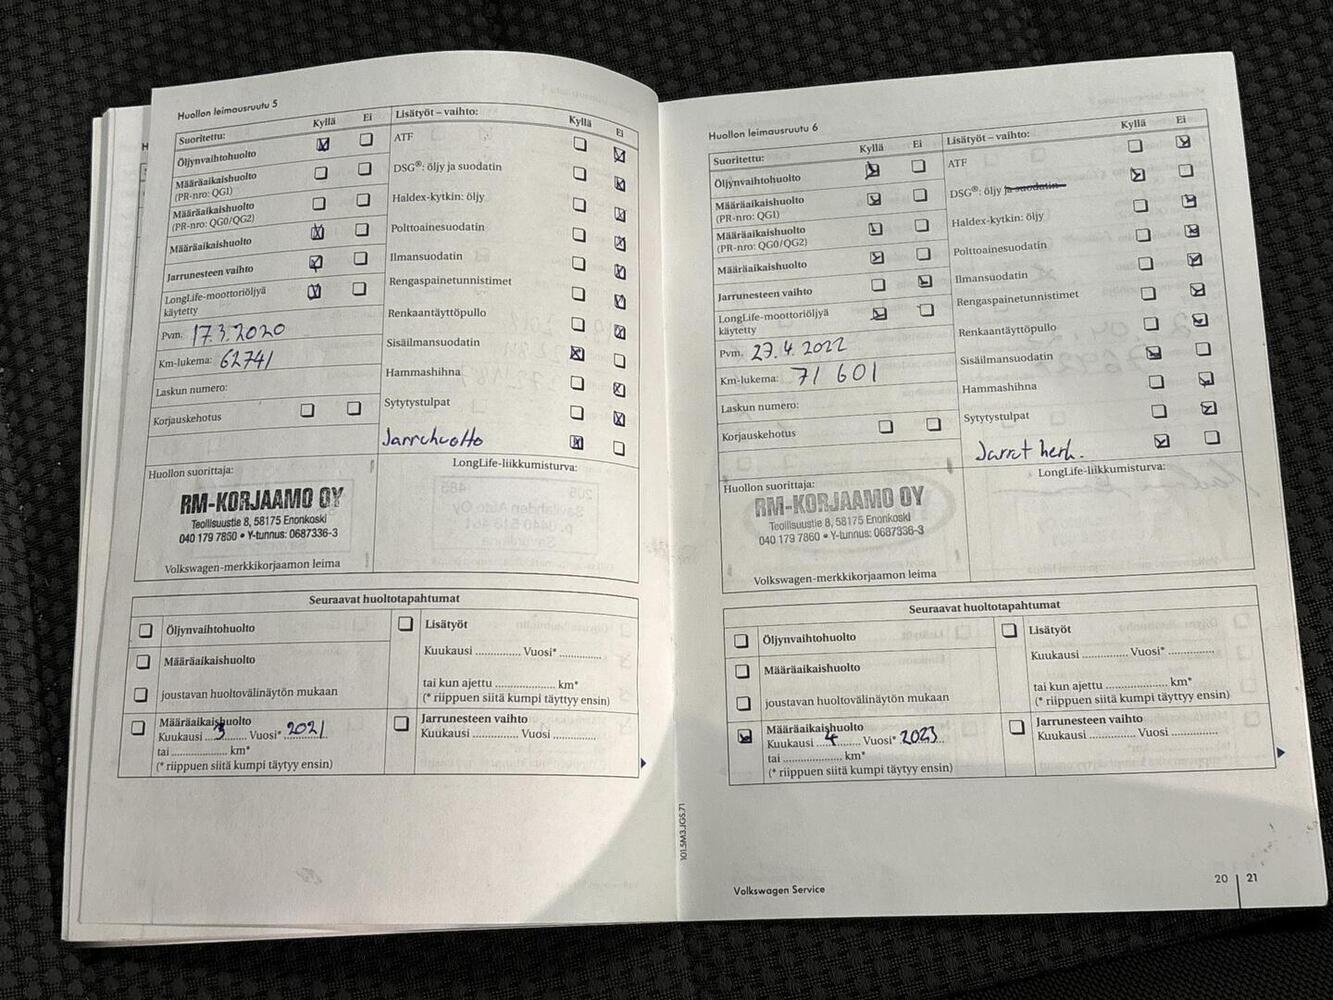 Huollon leimausruutu 5
Suoritettu: Kyllä Ei
Öljynvaihtohuolto
Määräaikaishuolto
(PR-nro: QG1)
Määräaikaishuolto
(PR-nro: QG0/QG2)
Määräaikaishuolto
Jarrunesteen vaihto
LongLife-moottoriöljyä
käytetty
Pvm. 17.3.2020
Km-lukema: 62741
Laskun numero:
Korjauskehotus
Lisätyöt – vaihto: Kyllä Ei
ATF
DSG®: öljy ja suodatin
Haldex-kytkin: öljy
Polttoainesuodatin
Ilmansuodatin
Rengaspainetunnistimet
Renkaantäyttöpullo
Sisäilmansuodatin
Hammashihna
Sytytystulpat
Jarruhuolto
Huollon suorittaja:
RM-KORJAAMO OY
Teollisuustie 8, 58175 Enonkoski
040 179 7860 • Y-tunnus: 0687336-3
Volkswagen-merkkikorjaamon leima
LongLife-liikkumisturva:
Seuraavat huoltotapahtumat
Öljynvaihtohuolto
Määräaikaishuolto
joustavan huoltovälinäytön mukaan
Määräaikaishuolto
Kuukausi ...3... Vuosi* 2021
tai .................. km*
(* riippuen siitä kumpi täytyy ensin)
Lisätyöt
Kuukausi .............. Vuosi* ..............
tai kun ajettu .................... km*
(* riippuen siitä kumpi täyttyy ensin)
Jarrunesteen vaihto
Kuukausi .............. Vuosi ..............
Huollon leimausruutu 6
Suoritettu: Kyllä Ei
Öljynvaihtohuolto
Määräaikaishuolto
(PR-nro: QG1)
Määräaikaishuolto
(PR-nro: QG0/QG2)
Määräaikaishuolto
Jarrunesteen vaihto
LongLife-moottoriöljyä
käytetty
Pvm. 27.4.2022
Km-lukema: 71 601
Laskun numero:
Korjauskehotus
Lisätyöt – vaihto: Kyllä Ei
ATF
DSG®: öljy ja suodatin
Haldex-kytkin: öljy
Polttoainesuodatin
Ilmansuodatin
Rengaspainetunnistimet
Renkaantäyttöpullo
Sisäilmansuodatin
Hammashihna
Sytytystulpat
Jarrut herk.
Huollon suorittaja:
RM-KORJAAMO OY
Teollisuustie 8, 58175 Enonkoski
040 179 7860 • Y-tunnus: 0687336-3
Volkswagen-merkkikorjaamon leima
LongLife-liikkumisturva:
Seuraavat huoltotapahtumat
Öljynvaihtohuolto
Määräaikaishuolto
joustavan huoltovälinäytön mukaan
Määräaikaishuolto
Kuukausi ...4... Vuosi* 2023
tai .................. km*
(* riippuen siitä kumpi täytyy ensin)
Lisätyöt
Kuukausi .............. Vuosi* ..............
tai kun ajettu .................... km*
(* riippuen siitä kumpi täyttyy ensin)
Jarrunesteen vaihto
Kuukausi .............. Vuosi ..............
101.5M3.JGS.71
Volkswagen Service
20 | 21